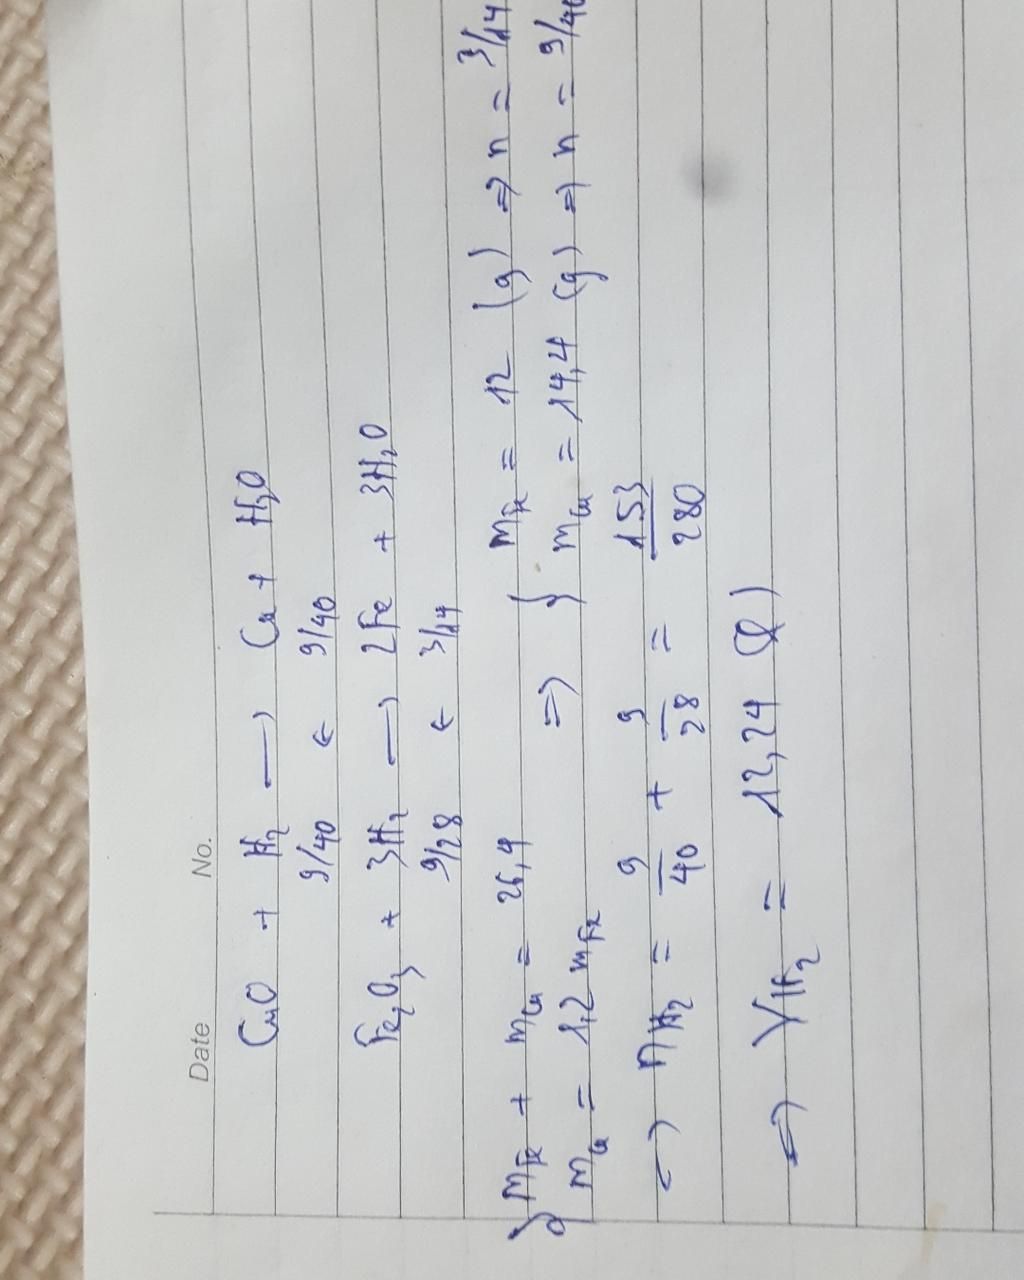 Date No.
CuO + H₂ ⟶ Cu + H₂O
9/40 ← 9/40
Fe₂O₃ + 3H₂ ⟶ 2Fe + 3H₂O
9/28 ← 3/14
{ mFe + mCu = 26,4 } mFe = 12 (g) => n = 3/14
mCu = 1,2 mFe => mCu = 14,4 (g) => n = 9/40
=> nH₂ = 9/40 + 9/28 = 153/280
=> VH₂ = 12,24 (l)